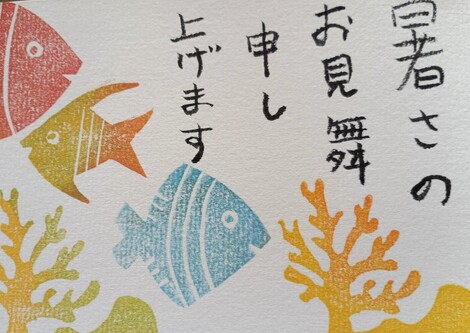 暑さの
お見舞
申し
上げます